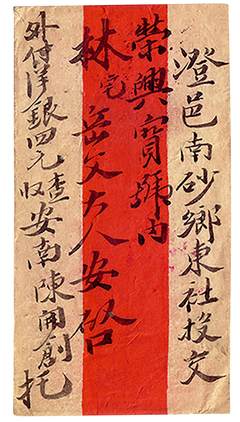 澄邑南砂鄉東社投交
榮興寶號内
林宅岳父大人安啓
外付洋銀四元查收安南陳開創托